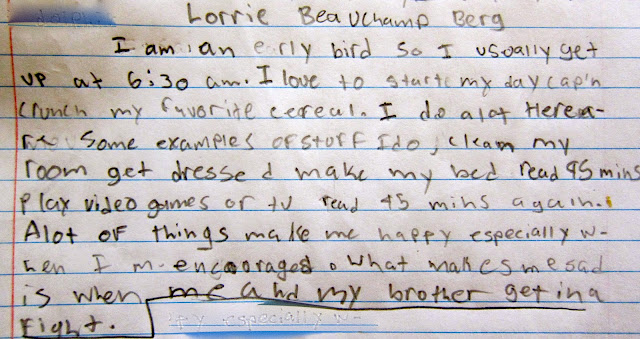 Lorrie Beauchamp Berg
I am an erly bird so I usually get
up at 6:30 am. I love to starte my day cap'n
crunch my favorite cereal. I do alot Herea-
Some examples of stuff I do, clean my
room get dressed make my bed read 45 mins
Play video games or tv read 45 mins again.
Alot of things make me happy especially w-
hen I m encooraged. What makes me sad
is when me and my brother get in a
Fight.